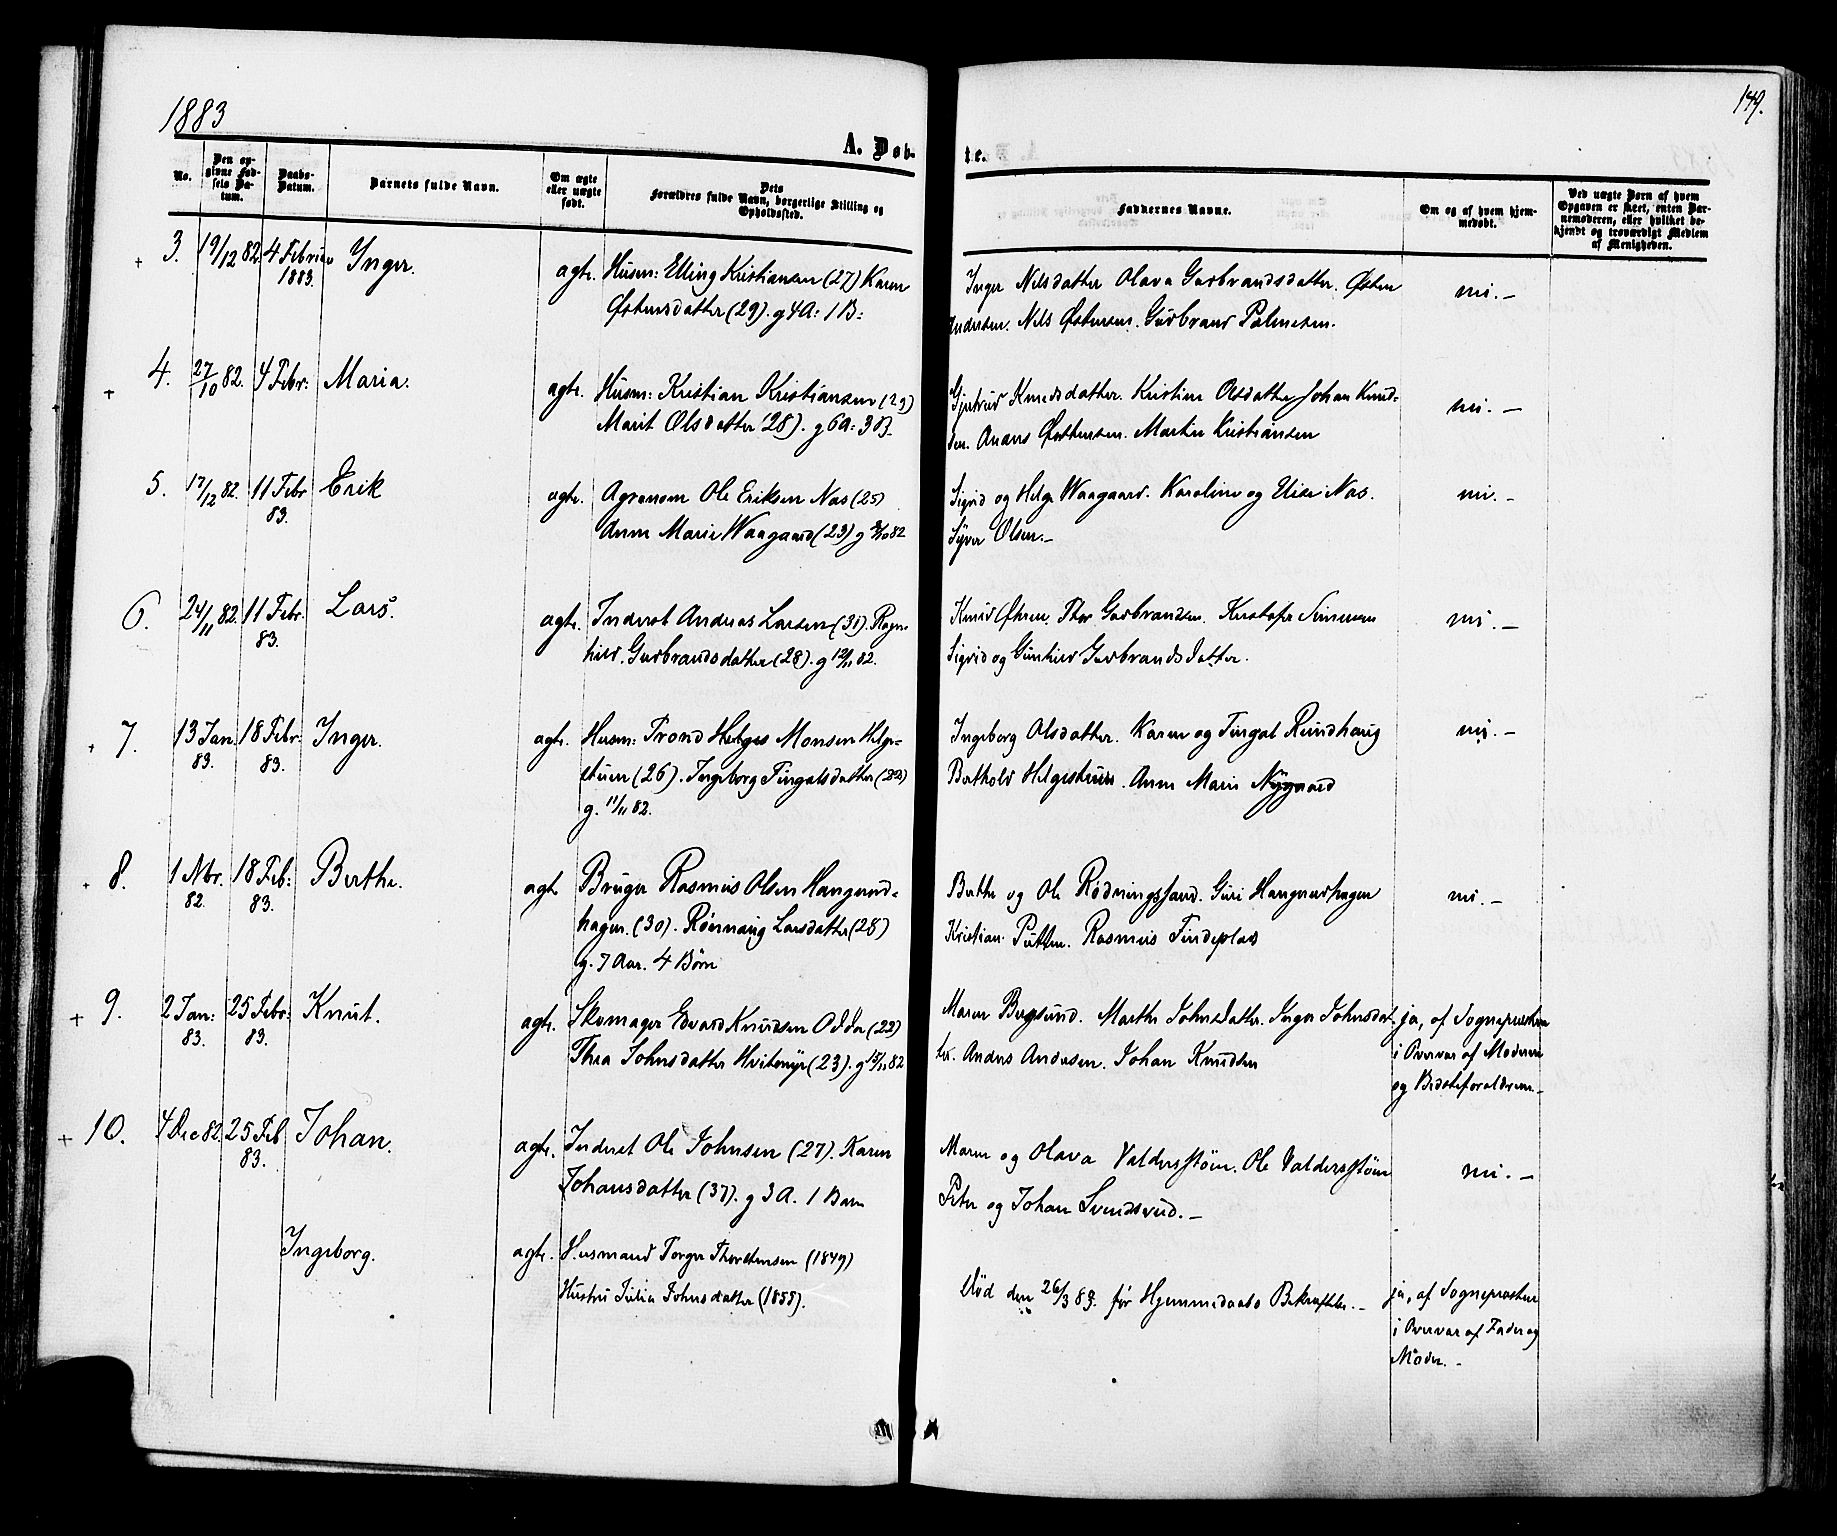 1883
149.
A. Døb-
te.
No.
Den op-
givne Fød-
sels Da-
tum.
Daabs-
Datum.
Barnets fulde Navn.
Om ægte
eller uægte
født.
Dets
Forældres fulde Navn, borgerlige Stilling og
Opholdssted.
Faddernes Navne.
Om og af hvem hjem-
medøbt.
Ved uægte Børn af hvem
Opgaven er skeet, enten Bar-
nemoderen, eller hvilket be-
kjendt og troværdigt Medlem
af Menigheden.
+ 3. 19/12 82. 4 Februar
1883.
Inger.
ægte.
Husm: Elling Kristiansen (27) Karen
Østensdatter (29). g 4 A: 1 B:
Inger Nilsdatter Olava Gudbrandsdatter. Østen
Andersen. Nils Østensen. Gudbrand Palmesen.
nei. -
+ 4. 27/10 82. 4 Febr: Maria.
ægte.
Husm: Kristian Kristiansen (29)
Marit Olsdatter (28). g 6 A: 3 B.
Gjertrud Knudsdatter. Kristine Olsdatter Johan Knud-
sen. Anders Østensen. Martin Kristiansen
nei. -
5. 17/12 82. 11 Febr
83.
Erik
ægte.
Agronom Ole Eriksen Næs (25)
Anne Marie Waagaard (23) g /10 82
Sigrid og Helge Waagaard. Karoline og Elise Næs.
Syver Olsen. -
nei. -
6. 24/11 82. 11 Febr.
83.
Lars.
ægte.
Inderst Andreas Larsen (31). Ragn-
hild. Gudbrandsdatter (28). g 12/11 82.
Knud Øhren. Thor Gudbrandsen. Kristofer Simensen
Sigrid og Gunhild Gudbrandsdatter.
nei. -
+ 7. 13 Jan.
83.
18 Febr.
83.
Inger.
ægte.
Husm: Trond Helges Monsen Helge-
stuen (26). Ingeborg Tingalsdatter (22)
g. 11/11 82.
Ingeborg Olsdatter. Karen og Tingal Rundhaug
Berthold Helgestuen. Anne Marie Nygaard
nei. -
+ 8. 1 Nbr.
82.
18 Feb:
83.
Berthe.
ægte
Bruger Rasmus Olsen Haugerud-
hagen. (30). Rønnaug Larsdatter (28)
g. 7 Aar. 4 Børn
Berthe og Ole Rødningssand. Guri Haugerudhagen
Kristian Putten. Rasmus Tindeplas
nei. -
+ 9. 2 Jan:
83.
25 Febr:
83.
Knut.
ægte.
Skomager Edvard Knudsen Odden (22)
Thea Johnsdatter Hvitemyr (23). g /11 82
Maren Bergsund. Marthe Johnsdatter. Inger Johnsdat-
ter. Anders Andersen. Johan Knudsen
ja, af Sognepresten
i Overvær af Moderen
og Bedsteforældrene. -
+ 10. 4 Dec 82. 25 Feb
83.
Johan.
ægte.
Inderst Ole Johnsen (27). Karen
Johansdatter (37). g 3 A. 1 Barn
Maren og Olava Valdersstøen. Ole Valdersstøen
Peter og Johan Svendsrud. -
nei. -
Ingeborg.
ægte.
Husmand Torger Thorstensen (1849)
Hustru Julia Johnsdatter (1855).
Død den 26/3 83. før Hjemmedaabs Bekræftelse. -
ja, af Sognepresten
i Overvær af Fader og
Moder. -